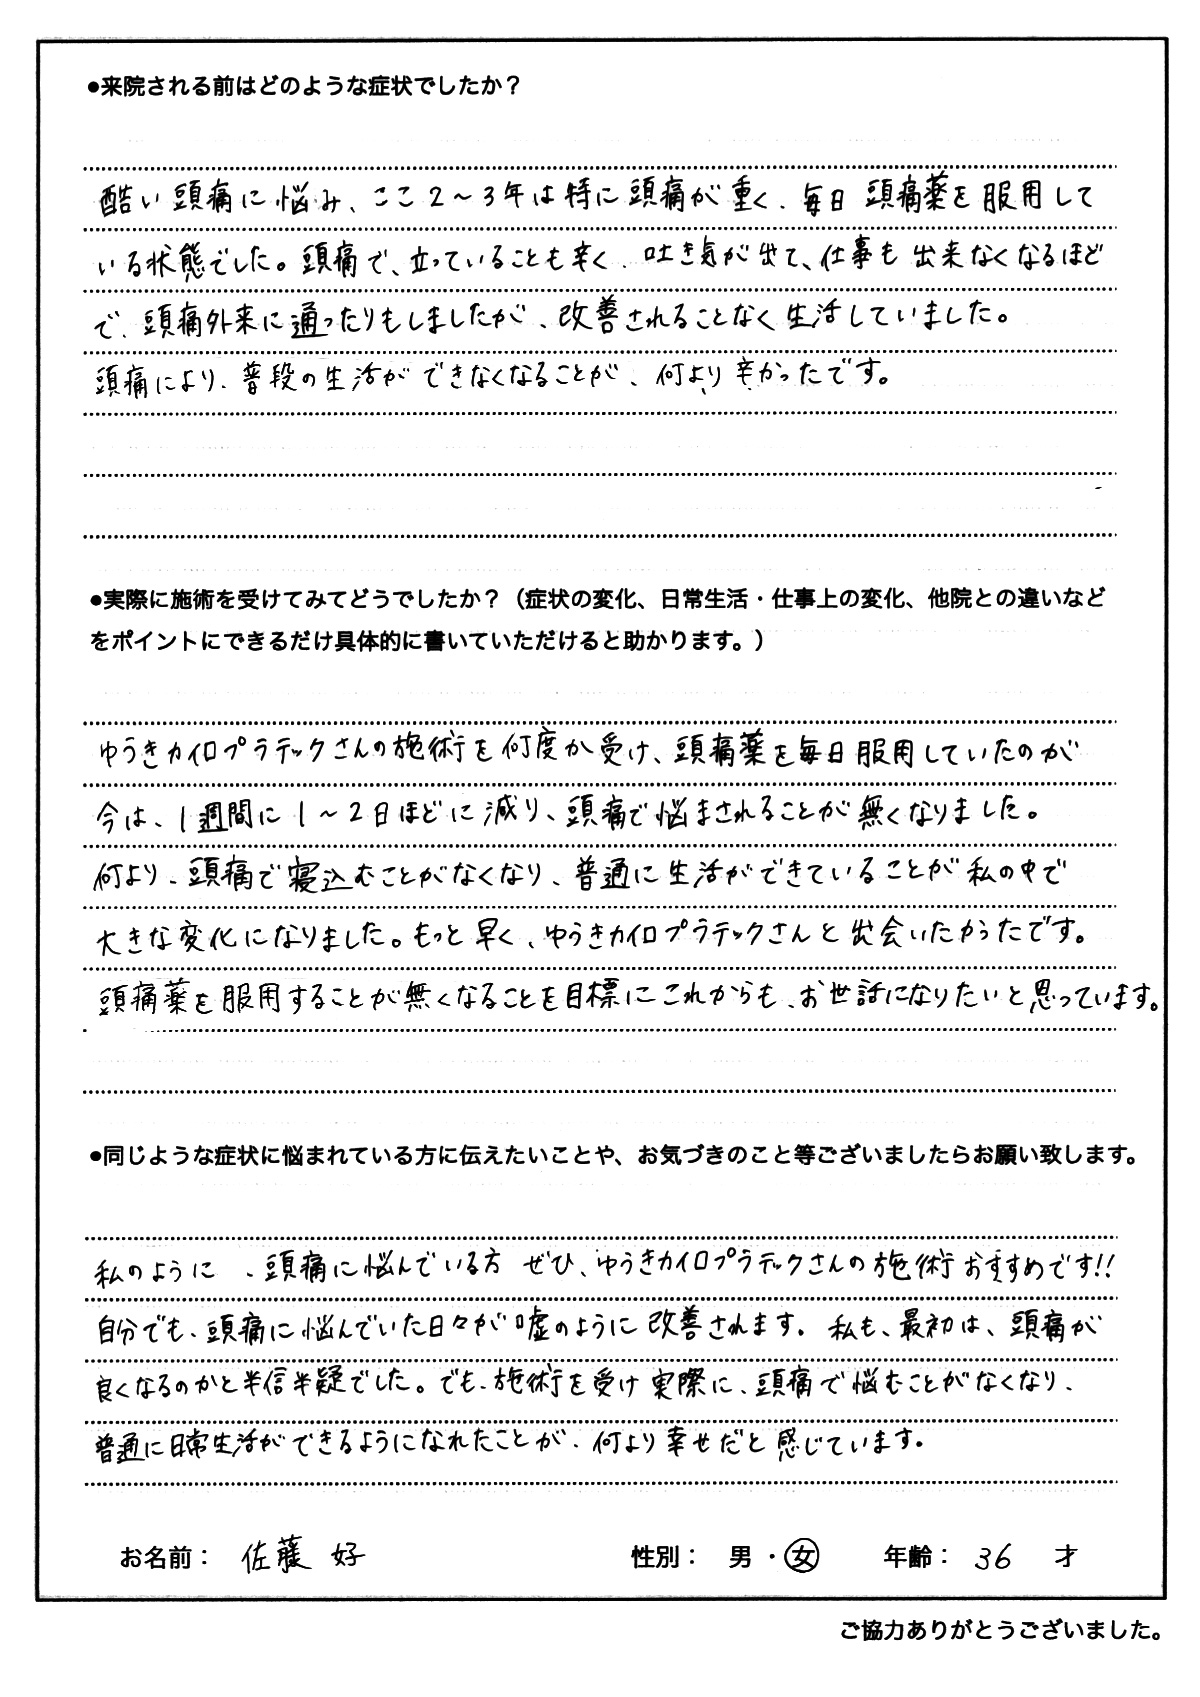 ●来院される前はどのような症状でしたか？
酷い頭痛に悩み、ここ2～3年は特に頭痛が重く、毎日 頭痛薬を服用して
いる状態でした。頭痛で、立っていることも辛く、吐き気が出て、仕事も出来なくなるほど
で、頭痛外来に通ったりもしましたが、改善されることなく生活していました。
頭痛により、普段の生活ができなくなることが、何より辛かったです。
●実際に施術を受けてみてどうでしたか？（症状の変化、日常生活・仕事上の変化、他院との違いなど
をポイントにできるだけ具体的に書いていただけると助かります。）
ゆうきカイロプラテックさんの施術を何度か受け、頭痛薬を毎日服用していたのが
今は、1週間に1～2日ほどに減り、頭痛で悩まされることが無くなりました。
何より、頭痛で寝込むことがなくなり、普通に生活ができていることが私の中で
大きな変化になりました。もっと早く、ゆうきカイロプラテックさんと出会いたかったです。
頭痛薬を服用することが無くなることを目標にこれからも、お世話になりたいと思っています。
●同じような症状に悩まれている方に伝えたいことや、お気づきのこと等ございましたらお願い致します。
私のように 、頭痛に悩んでいる方 ぜひ、ゆうきカイロプラテックさんの施術おすすめです!!
自分でも、頭痛に悩んでいた日々が嘘のように改善されます。私も、最初は、頭痛が
良くなるのかと半信半疑でした。でも、施術を受け実際に、頭痛で悩むことがなくなり、
普通に日常生活ができるようになれたことが、何より幸せだと感じています。
お名前： 佐藤 好 性別： 男・女 年齢： 36 才
ご協力ありがとうございました。